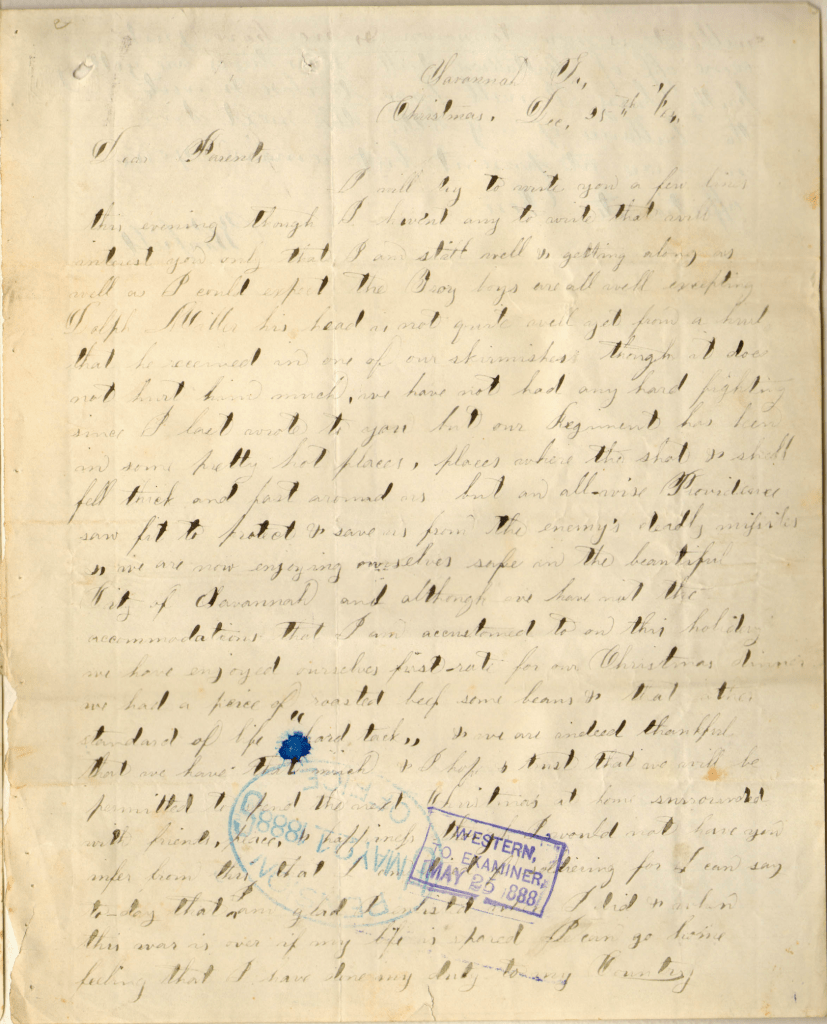 Savannah Ga,
Christmas, Dec, 25th /64,
Dear Parents
I will try to write you a few lines
this evening though I havent any to write that will
interest you only that I am still well & getting along as
well as I could expect the Troy boys are all well excepting
Miller his head is not quite well yet from a hurt
that he received in one of our skirmishes though it does
not hurt him much, we have not had any hard fighting
since I last wrote to you but our Regiment has been
in some pretty hot places, places where the shot & shell
fell thick and fast around us but an all-wise Providence
saw fit to protect & save us from the enemy's deadly missiles
& we are now enjoying ourselves safe in the beautiful
City of Savannah and although we have not the
accommodations that I am accustomed to on this holiday
we have enjoyed ourselves first-rate for our Christmas dinner
we had a peice of roasted beef some beans & that other
standard of life "hard tack,, & we are indeed thankful
that we have this much & I hope & trust that we will be
permitted to spend the next Christmas at home surrounded
with friends, peace, & happiness though I would not have you
infer from this that I for I can say
to-day that I am glad I enlisted when I did & when
this war is over if my life is spared I can go home
feeling that I have done my duty to my Country
MAY 21 1888
WESTERN,
O. EXAMINER,
MAY 25 1888